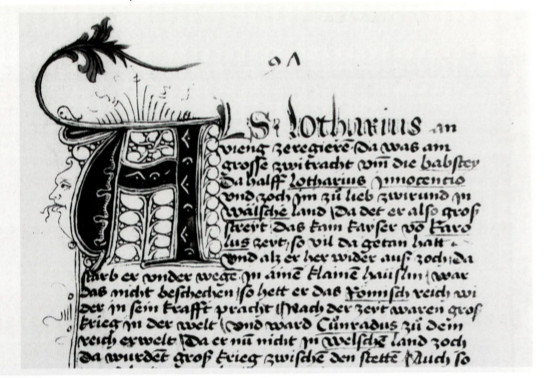 91
ALS Lotharius an
vieng zeregiere Da was am
grosse zwitracht vm die babstey
Da halff Lotharius Innocentio
vnd zoch im zu lieb zwirund in
wälsche land Da det er also gross
streit das kain kayser vo Karo
lus zeit so vil da getan hatt
vnd alz er her wider aus zoch da
starb er vnder wege in ainē klainē häuslin war
das nicht beschechen so hett er das Römisch reich wi
der in sein krafft pracht Nach der zeit waren gros
krieg in der welt vnd ward Cunradus zu dem
reich erwelt Da er nū nicht in welschē land zoch
da wurdēt gross krieg zwischē den stettē Auch so